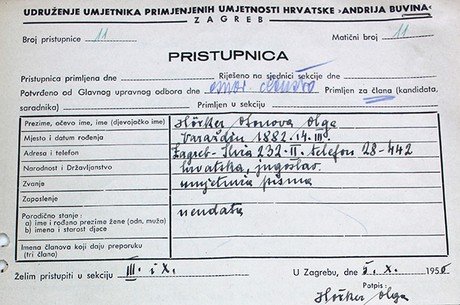 UDRUŽENJE UMJETNIKA PRIMJENJENIH UMJETNOSTI HRVATSKE ›ANDRIJA BUVINA‹
ZAGREB
Broj pristupnice 11 Matični broj 11
PRISTUPNICA
Pristupnica primljena dne Riješeno na sjednici sekcije dne
Potvrđeno od Glavnog upravnog odbora dne Primljen za člana (kandidata,
saradnika) Primljen u sekciju
Prezime, očevo ime, ime (djevojačko ime) Höcker Olga
Mjesto i datum rođenja Varaždin 1882. 14. III.
Adresa i telefon Zagreb - Ilica 232. II. telefon 28-442
Narodnost i Državljanstvo hrvatska, jugoslav.
Zvanje umjetnica pisma
Zaposlenje
Porodično stanje : neudata
a) ime i rođeno prezime žene (odn. muža)
b) imena i starost djece
Imena članova koji daju preporuku
(tri člana)
Želim pristupiti u sekciju III. i X. U Zagrebu, dne 5. X. 195
Potpis:
Höcker Olga